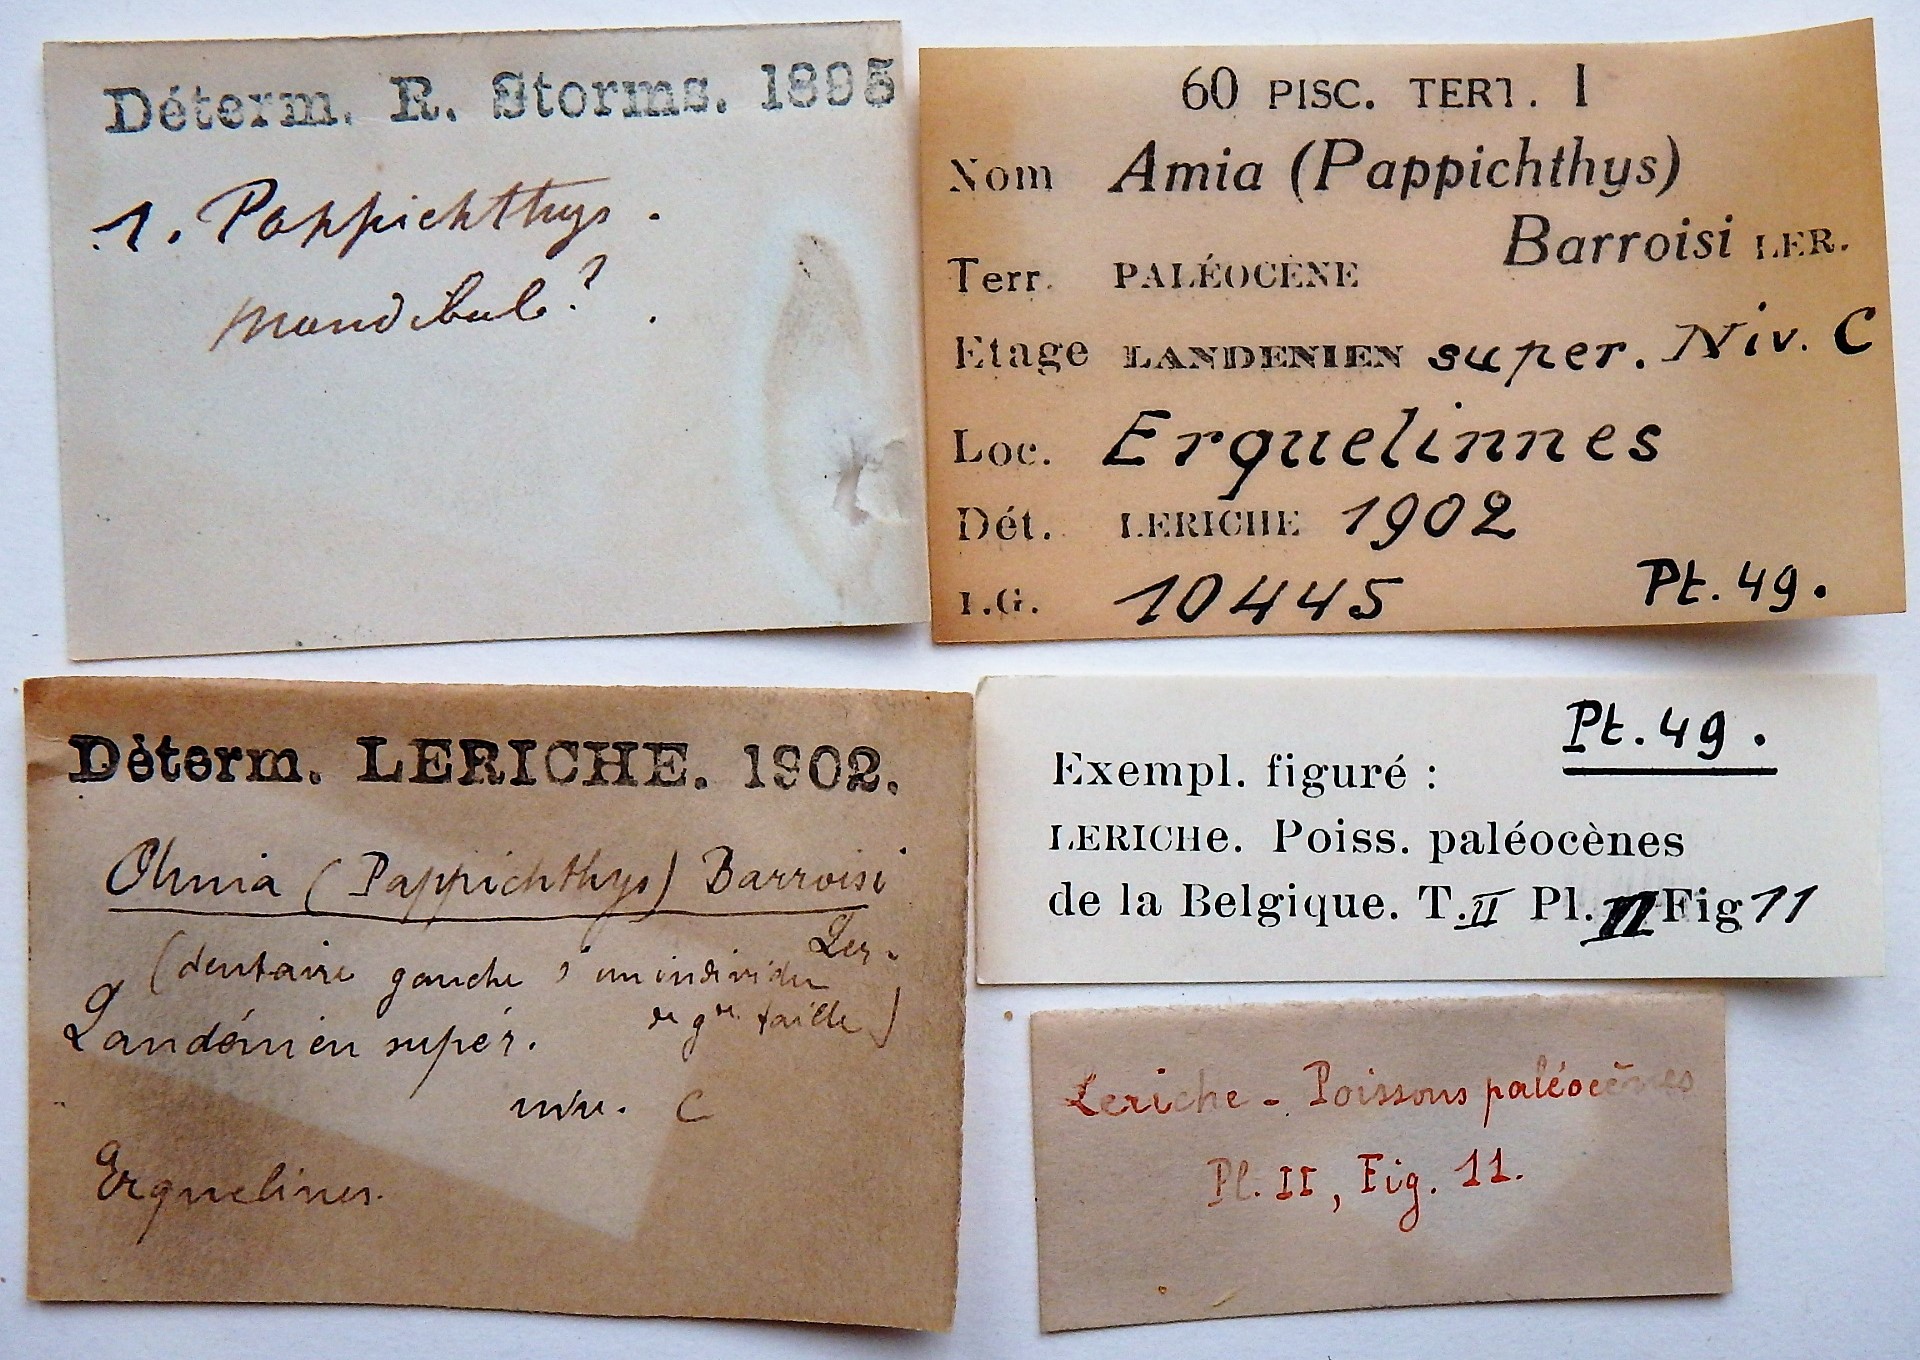 Déterm. R. Storms. 1895
1. Pappichthys.
mandibul?
60 PISC. TERT. I
Nom Amia (Pappichthys)
Barroisi LER.
Terr. PALÉOCÈNE
Etage LANDENIEN super. Niv. C
Loc. Erquelinnes
Dét. LERICHE 1902
I.G. 10445 Pt. 49.
Déterm. LERICHE. 1902.
Amia (Pappichthys) Barroisi
Ler.
(dentaire gauche d'un individu
de gde taille)
Landénien supér.
niv. C
Erquelines.
Pt. 49.
Exempl. figuré :
LERICHe. Poiss. paléocènes
de la Belgique. T. II Pl. II Fig 11
Leriche - Poissons paléocènes
Pl. II, Fig. 11.